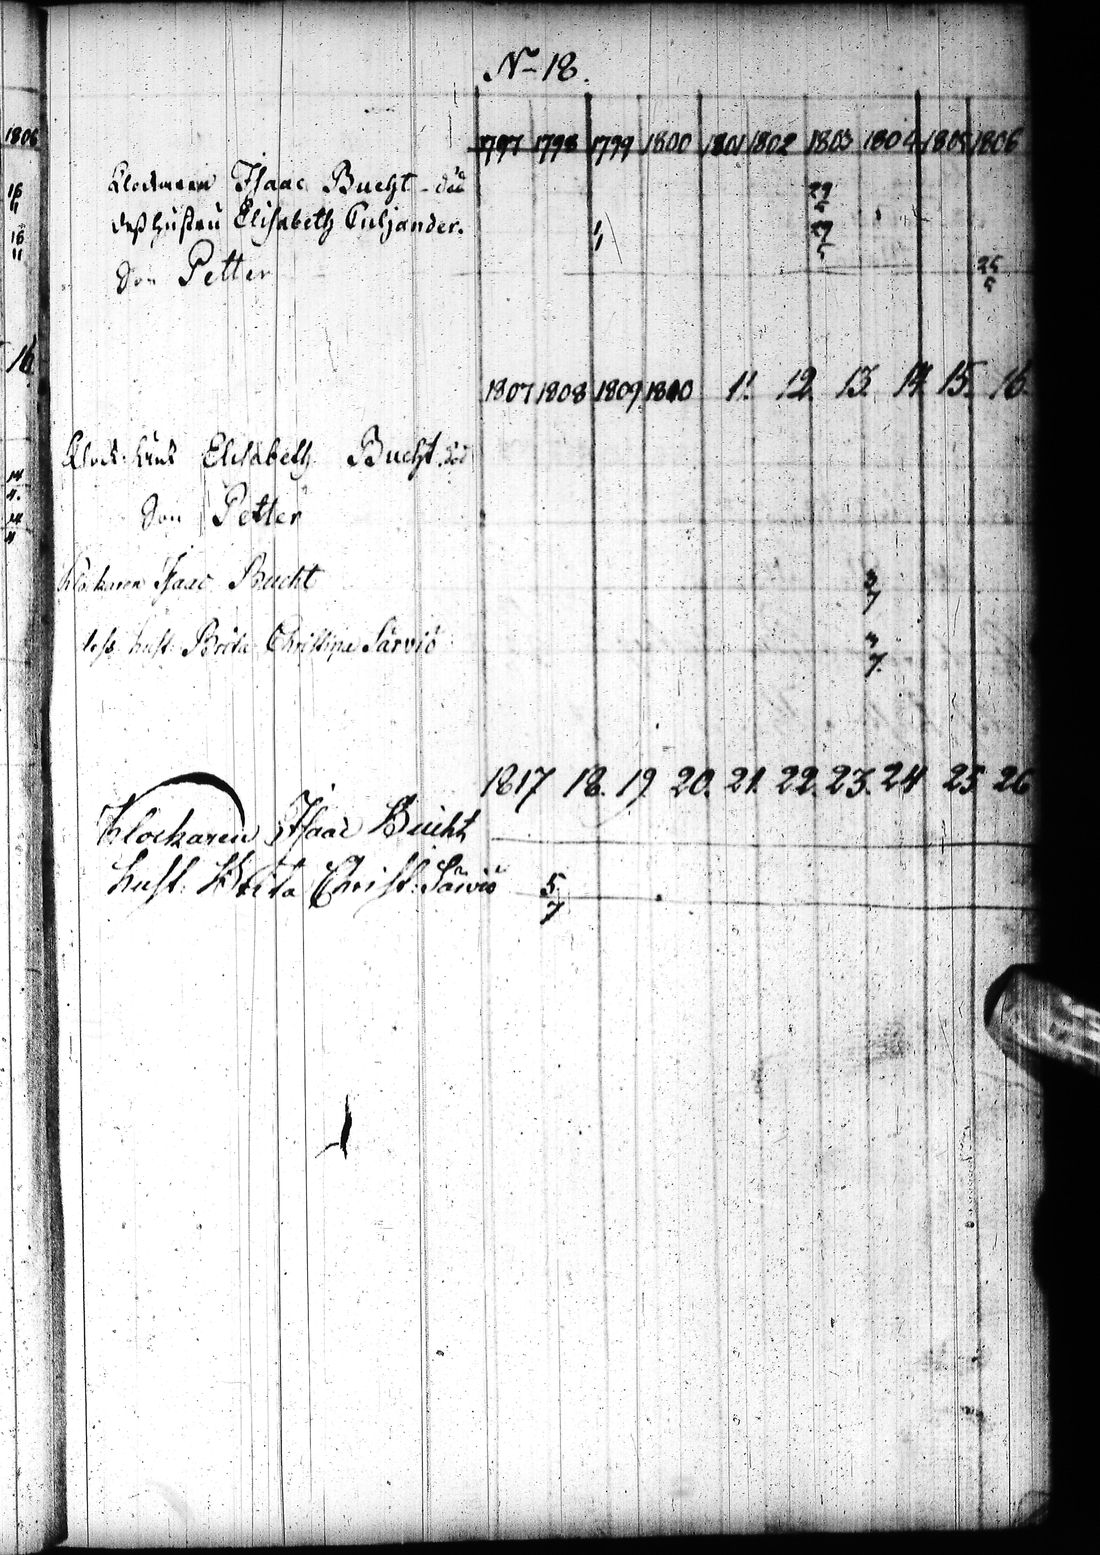 N 18.
1797 1798 1799 1800 1801 1802 1803 1804 1805 1806
1806
Klockaren Isaac Bucht död
29
16
11
deß hustru Elisabeth Ciljander.
1
1
27
5
16
11
Son Petter
25
5
16
1807 1808 1809 1810 11. 12. 13. 14. 15. 16.
Klock. Enk Elisabeth Bucht. död
14
4.
Son Petter
14
4
Klockaren Isaac Bucht
3
7
dess hust. Brita Christina Särviö
3
7.
1817 18. 19. 20. 21. 22. 23. 24 25 26
Klockaren Isaac Bucht
hust. Brita Christ. Särviö
5
7